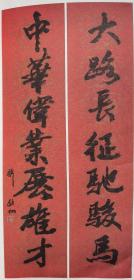 大路長征馳駿馬
中華偉業展雄才